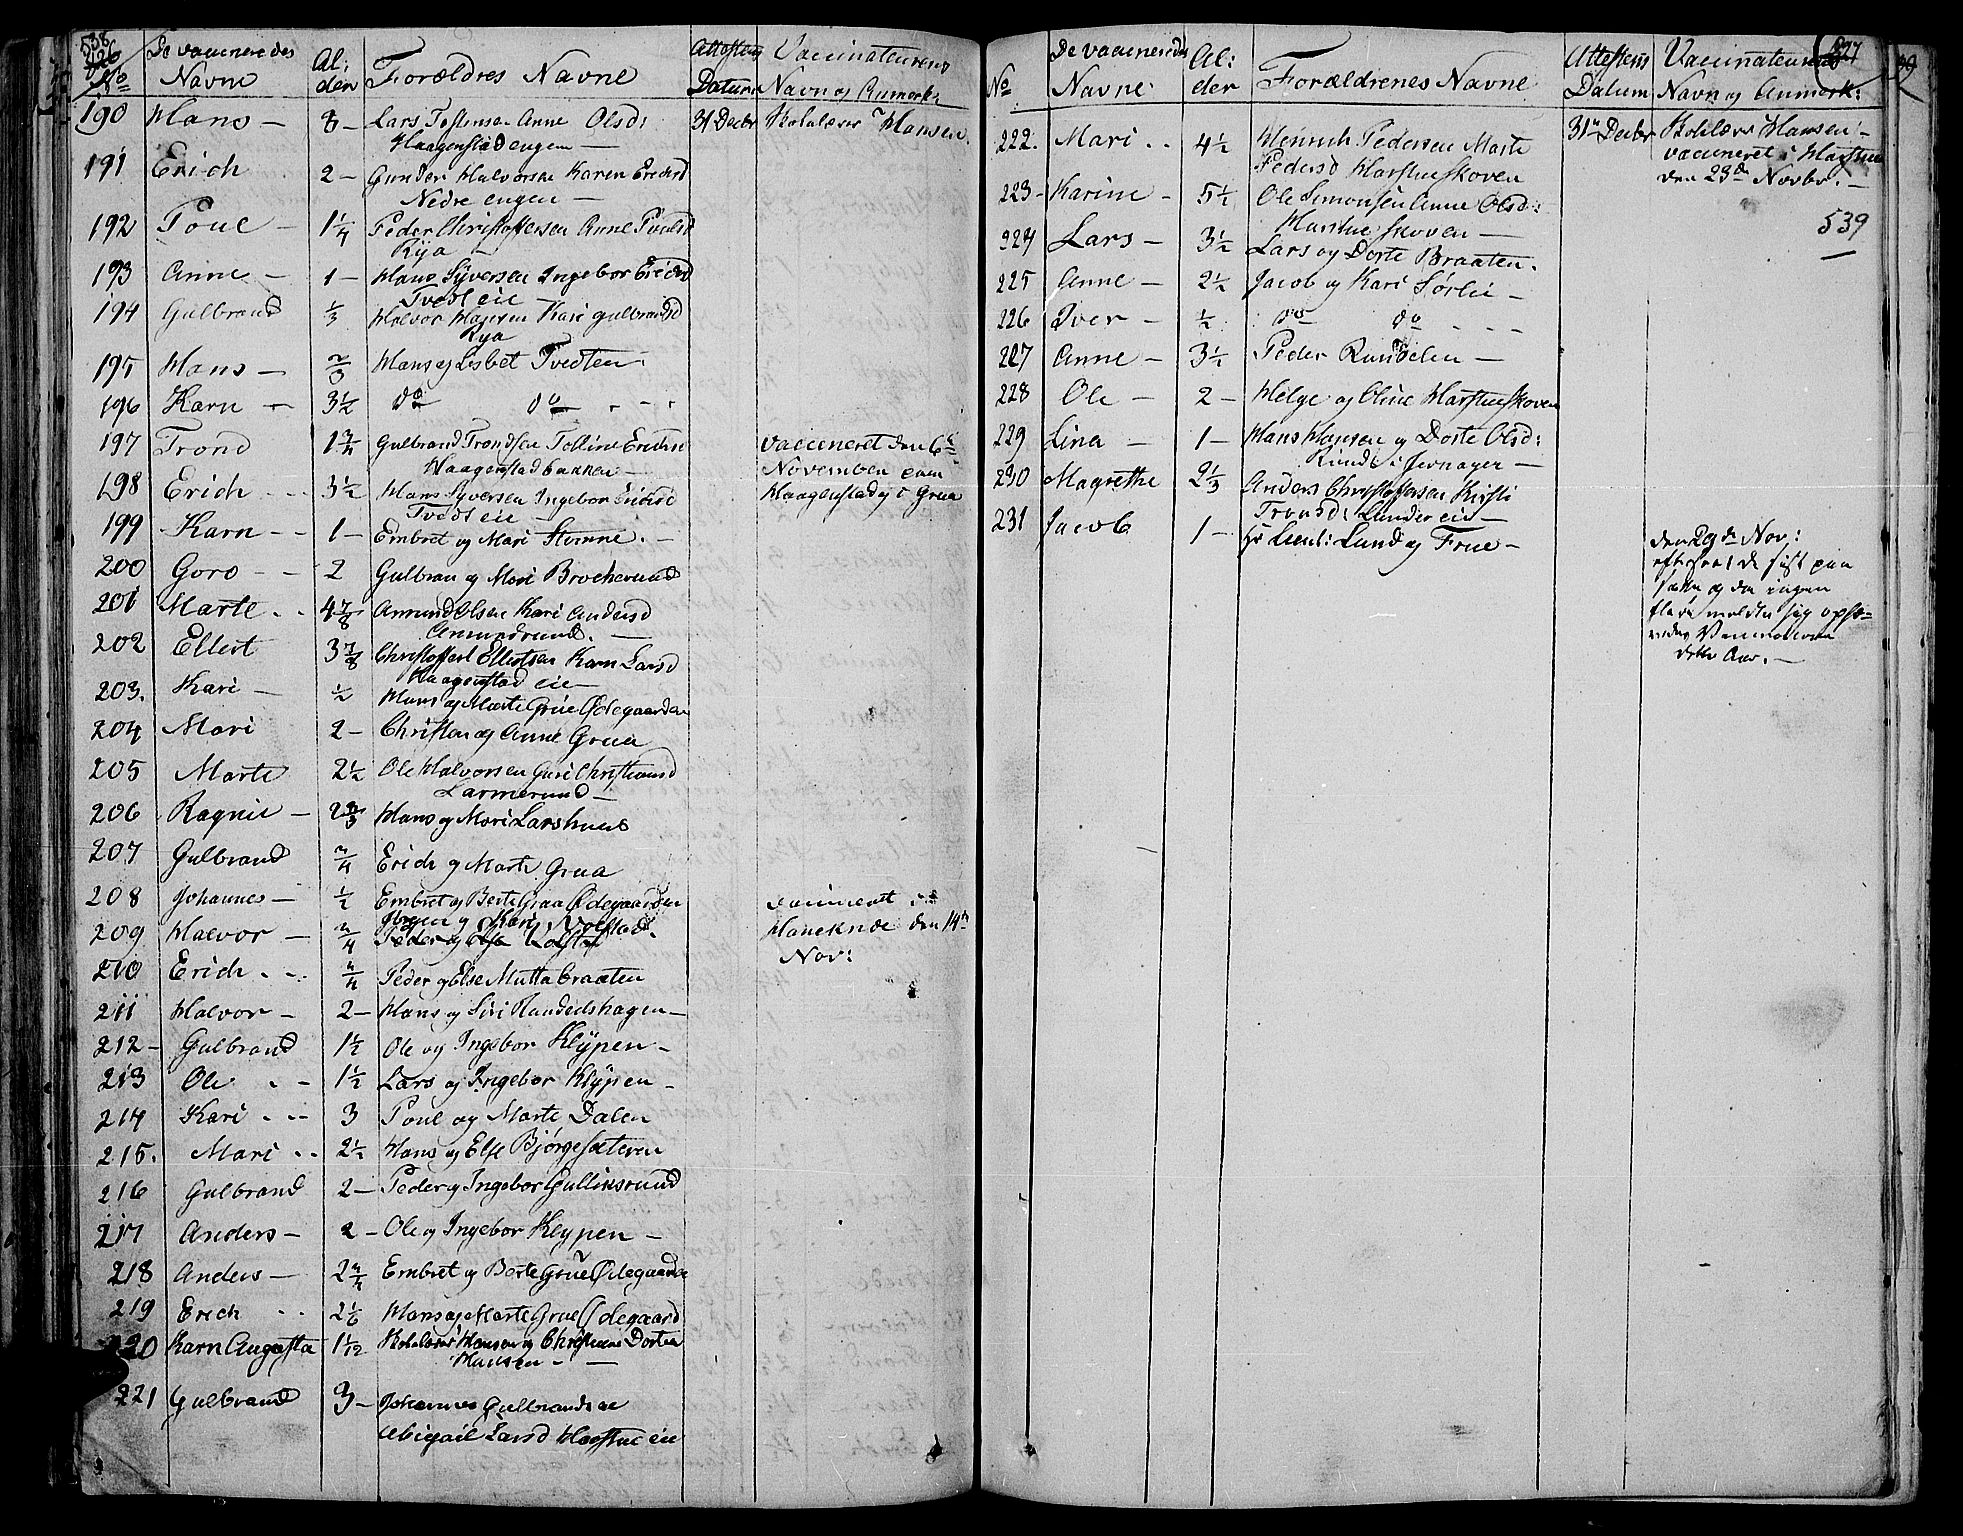 538
No De vaccineredes Navne Alder Forældres Navne Attestens Datum Vaccinateurens Navn og Anmærk:
190 Hans — 8 — Lars Tostensen Anne Olsd: 31 Decbr Skolelærer Hansen
Haagenstadengen —
191 Erich 2 — Gunder Halvorsen Karen Erichsd
Nedre engen —
192 Poul — 1 1/4 Peder Christoffersen Anne Poulsd
Rya —
193 Anne — 1 — Hans Syversen Ingebor Erichsd
Tvedt eie —
194 Gulbrand 1/3 Halvor Hansen Kari Gulbrandsd
Rya
195 Hans — Hans og Lisbet Tvedten
196 Karn — 3 1/2 do do
197 Trond Gulbrand Trondsen Tolline Erichsd vaccineret den 6te
Haagenstadbakken — November paa
198 Erich 3 1/2 Hans Syversen Ingebor Erichsd Haagenstad og i Grua
Tvedt eie —
199 Karn — 1 — Embret og Mari —
200 Goro — 2 Gulbran og Mari Brocherund
201 Marte 4 7/8 Amund Olsen Kari Andersd
Amundrund. —
202 Ellert 3 7/8 Christoffer Ellertsen Karn Larsd
Haagenstad eie —
203. Kari — 1/2 Hans og Marte Grue Ødegaarden
204 Mari 2 — Christen og Anne Grua
205 Marte 2 1/2 Ole Halvorsen Guri Christiansd
Larmerund —
206 Ragnie — 2 2/3 Hans og Mari Larshuus
207 Gulbrand 3/4 Erich og Marte Grua
208 Johannes — 1/2 Embret og Berte Grua Ødegaarden vaccineret i
209 Halvor — 3/4 og Kari Volstad. Hanekne den 14de
Peder og Else Nov:
210 Erich 3/4 Peder og Else Muttabraaten
211 Halvor — 2 — Hans og Siri —
212 — Gulbrand 1 1/2 Ole og Ingebor Klypen —
213 Ole — 1 1/2 Lars og Ingebor Klypen —
214 Kari 3 Poul og Marte Dalen
215. Mari 2 1/2 Hans og Else Bjørgesæteren
216 Gulbrand 2 — Peder og Ingebor Gulliksrund
217 Anders — 2 — Ole og Ingebor Klypen —
218 Anders — 2 3/4 Embret og Berte Grue Ødegaarde
219 Erich 2 1/6 Hans og Marte Grue Ødegaard
220 Karn Augusta 1 1/12 Skolelærer Hansen og Christiane Dortea
Hansen —
221 Gulbrand 3 — Johannes Gulbrandsen
Abigail Larsd Harstue eie
No De vaccineredes Navne Alder Forældrenes Navne Attestens Datum Vaccinateurens Navn og Anmærk:
222. Mari 4 1/2 Heinrich Pedersen Marte 31te Decbr Skolelærer Hansen
Pedersd Harstueskoven vaccineret i Harstue
den 23de Novbr. —
223 — Karine — 5 1/2 Ole Simonsen Anne Olsd:
Harstueskoven —
539
224 Lars — 3 1/2 Lars og Dorte Braaten.
225 Anne — 2 1/2 Jacob og Kari Sørlie —
226 Iver — 1/2 do do
227 Anne — 3 1/2 Peder Rundelen —
228 Ole — 2 — Helge og Oline Harstueskoven
229 Lina — 1 — Hans Hansen og Dorte Olsd:
Runde i Jevnager —
230 Magrethe 2 1/3 Anders Christoffersen Kirsti
Tronsd: Lunder eie —
231 Jacob 1 — Hr Lieut: Lund og Frue — den 29de Nov:
og da ingen
flere meldte sig
dette Aar. —